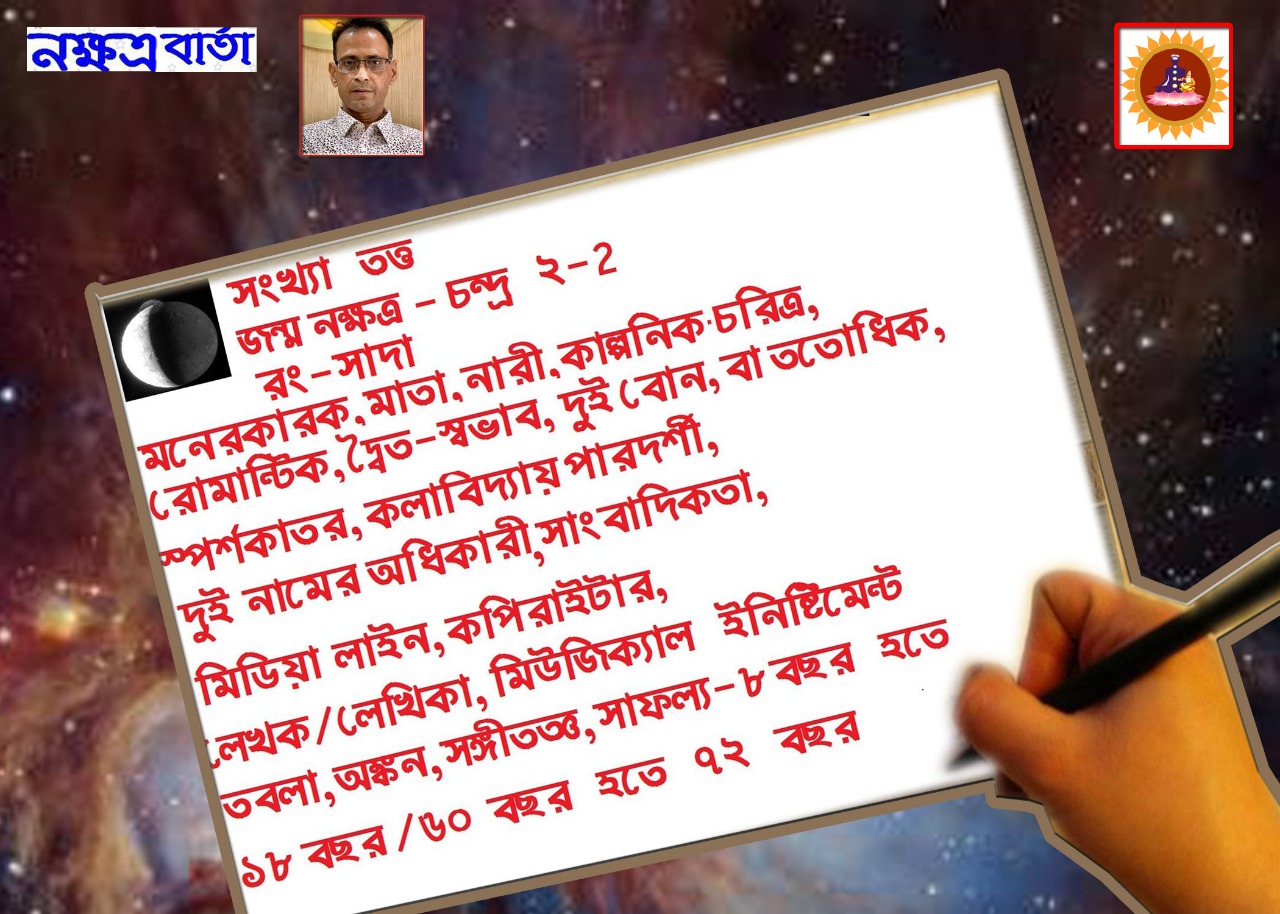 নক্ষত্র বার্তা
সংখ্যা তত্ত
জন্ম নক্ষত্র - চন্দ্র ২-2
রং - সাদা
মনেরকারক, মাতা, নারী, কাল্পনিক চরিত্র,
রোমান্টিক, দ্বৈত-স্বভাব, দুই বোন, বা ততোধিক,
স্পর্শকাতর, কলাবিদ্যায় পারদর্শী,
দুই নামের অধিকারী, সাংবাদিকতা,
মিডিয়া লাইন, কপিরাইটার,
লেখক/লেখিকা, মিউজিক্যাল ইনিষ্টিমেন্ট
তবলা, অঙ্কন, সঙ্গীতজ্ঞ, সাফল্য-৮ বছর হতে
১৮ বছর /৬০ বছর হতে ৭২ বছর